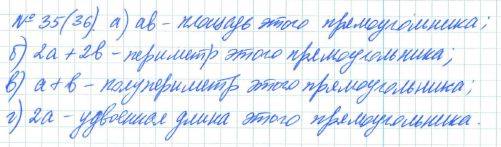 № 35(36). а) ав – площадь этого прямоугольника;
б) 2а + 2в – периметр этого прямоугольника;
в) а + в – полупериметр этого прямоугольника;
г) 2а – удвоенная длина этого прямоугольника.